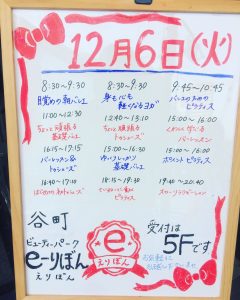 12月6日(火)
8:30~9:30
目覚めの朝バレエ
11:00~12:30
ちょっと頑張る
基礎バレエ
15:00~16:15
バーレッスン&
トゥシューズ
16:40~17:10
はじめてのトゥシューズ
8:30~9:30
身も心も
軽くなるヨガ
12:40~13:10
ちょっと頑張る
トゥシューズ
15:00~16:30
ゆっくりしっかり
基礎バレエ
18:15~19:30
9:45~10:45
バレエのための
ピラティス
15:00~16:00
バーレッスン
16:00~16:15
ポイントピラティス
19:40~20:40
谷町
ビューティーパーク
e-りぼん
えりぼん
e
えりぼん
受付は
5Fです
お気軽に
お越し下さいませ